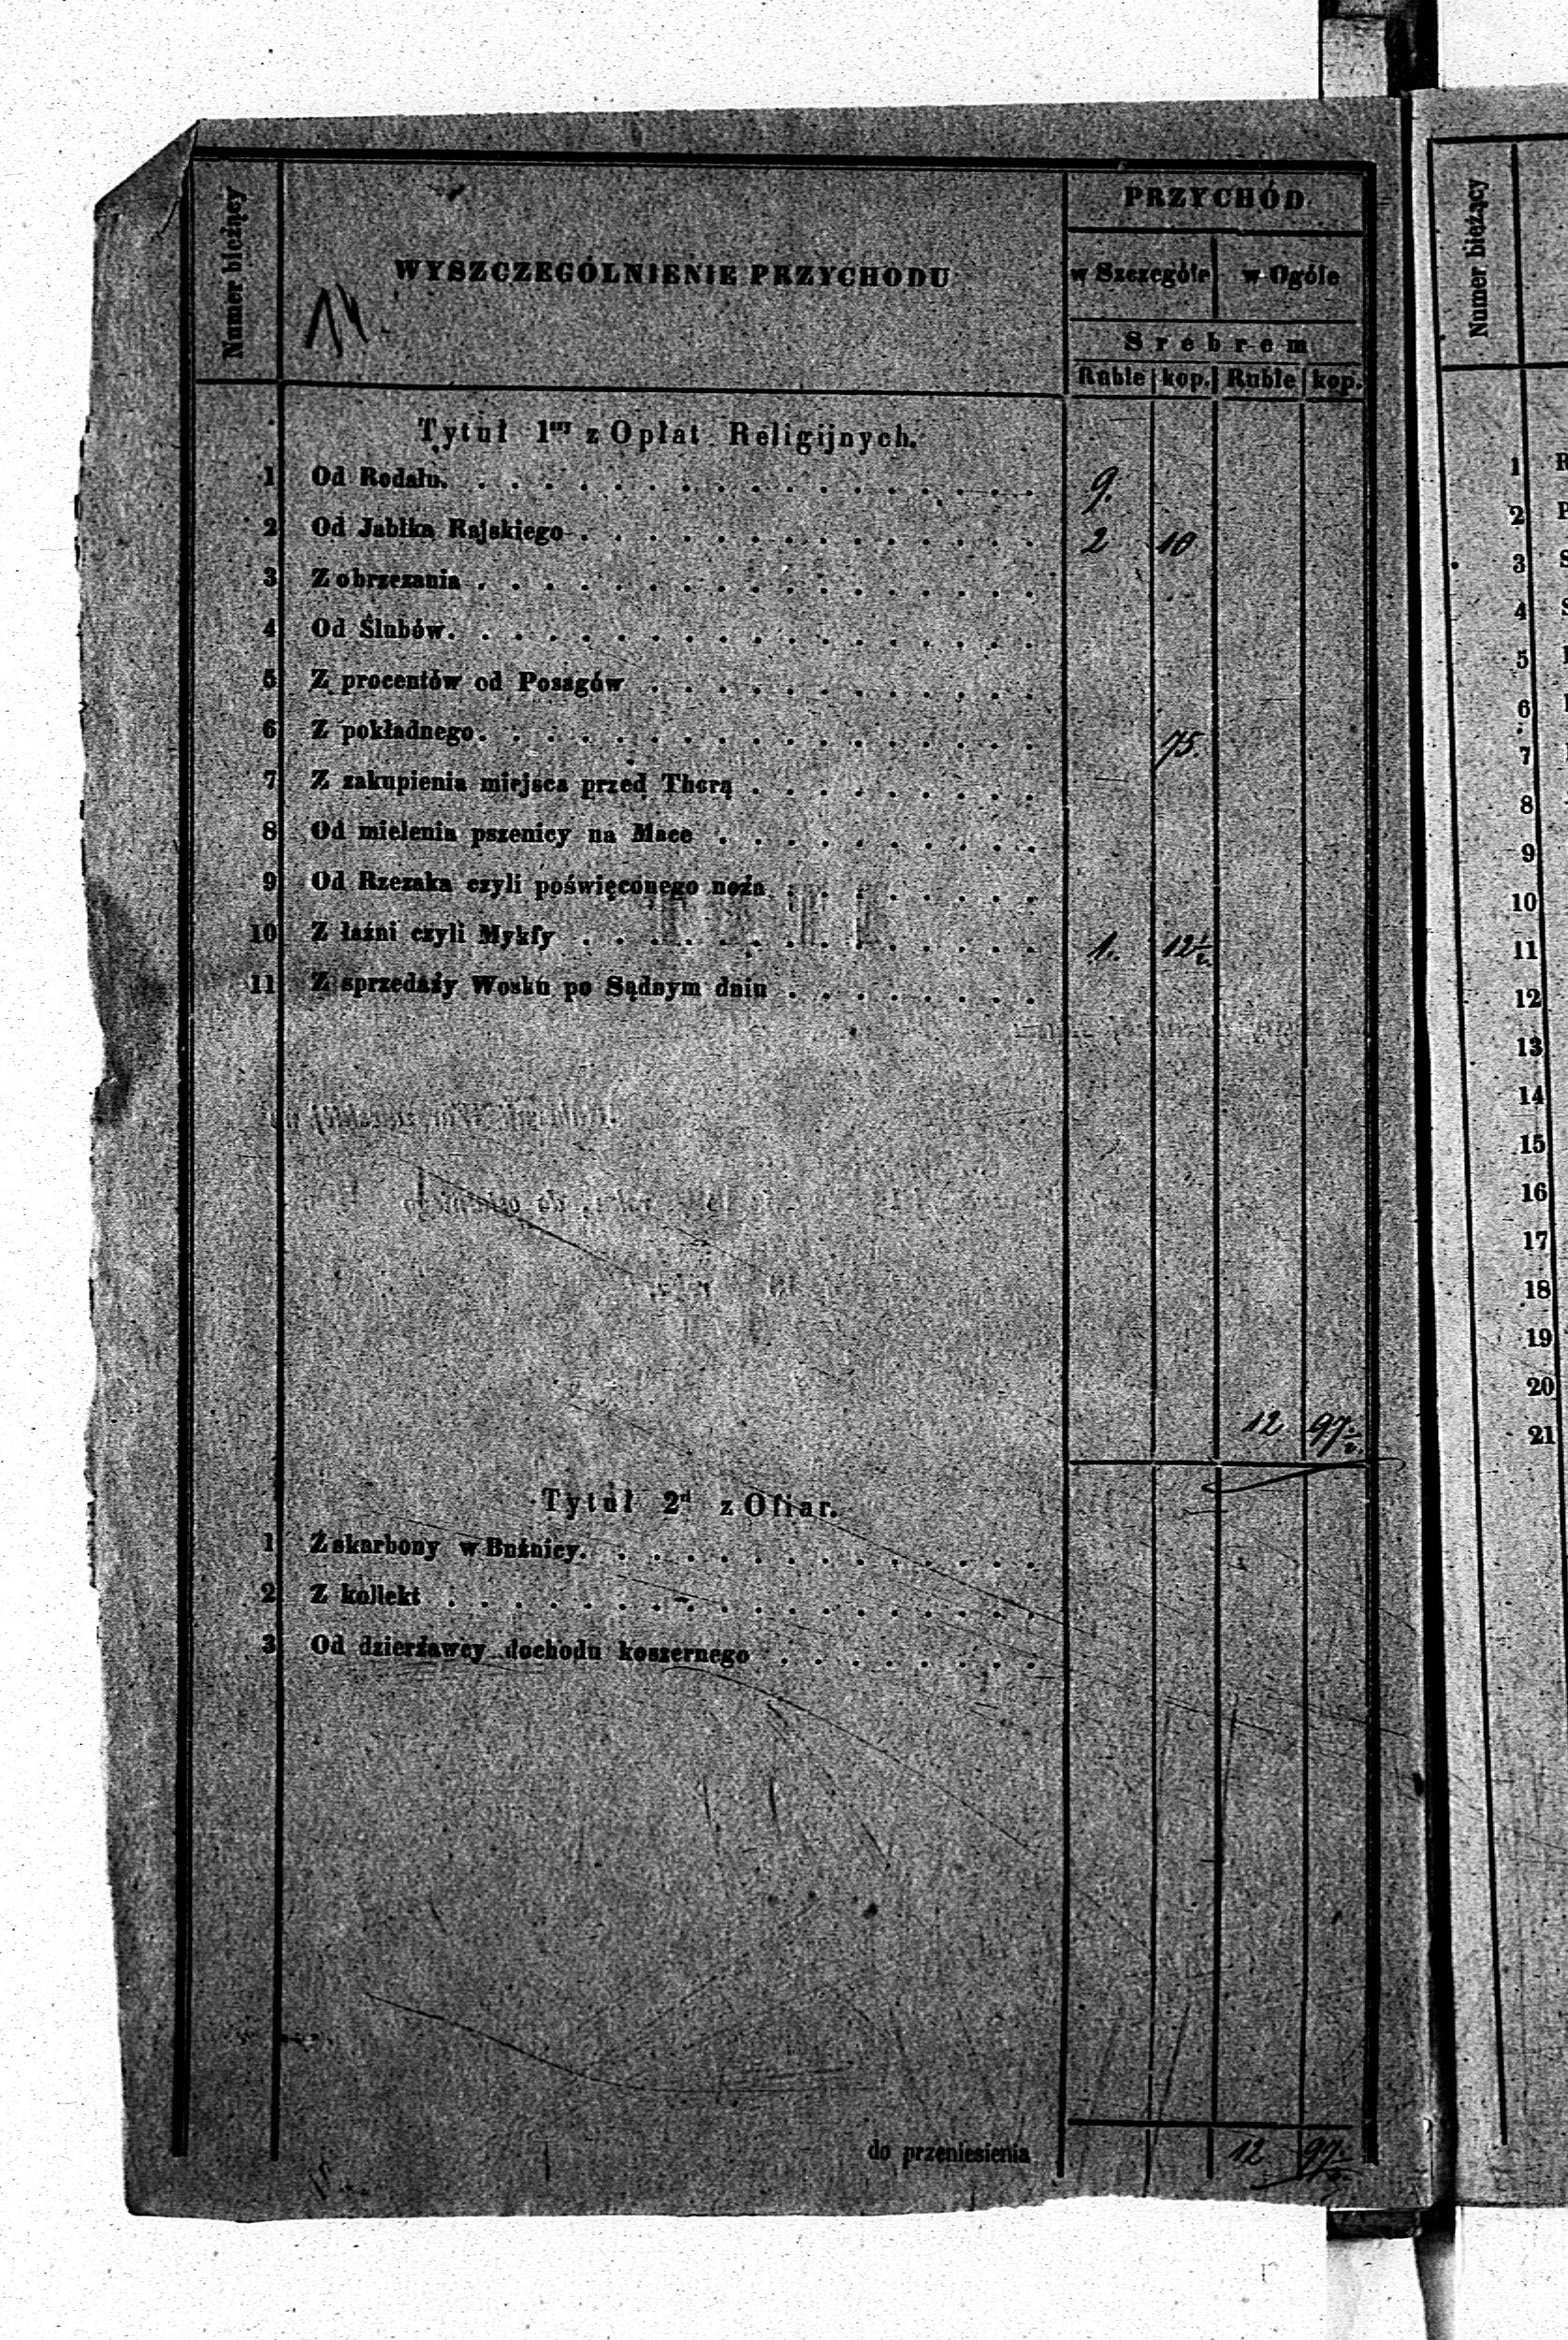 Numer bieżący
WYSZCZEGÓLNIENIE PRZYCHODU
PRZYCHÓD
w Szczególe w Ogóle
Srebrem
Ruble kop. Ruble kop.
Tytuł 1szy z Opłat Religijnych.
1 Od Rodału. 9.
2 Od Jabłka Rajskiego 2 10
3 Z obrzezania
4 Od Ślubów.
5 Z procentów od Posagów
6 Z pokładnego. 75.
7 Z zakupienia miejsca przed Thorą
8 Od mielenia pszenicy na Mace
9 Od Rzezaka czyli poświęconego noża
10 Z łaźni czyli Mykfy 1. 12½.
11 Z sprzedaży Wosku po Sądnym dniu
12 97½.
Tytuł 2gi z Ofiar.
1 Z skarbony w Bużnicy.
2 Z kollekt
3 Od dzierżawcy dochodu koszernego
do przeniesienia 12 97½.
Numer bieżący
1
2
3
4
5
6
7
8
9
10
11
12
13
14
15
16
17
18
19
20
21